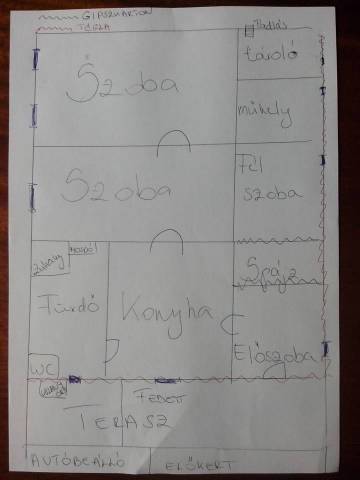 GIPSZKARTON
TÉGLA
Padlás
Szoba
tároló
műhely
Szoba
Fél
szoba
Zuhany
mosdó
Spájz
Fürdő
Konyha
Előszoba
WC
FEDETT
TERASZ
AUTÓBEÁLLÓ
ELŐKERT